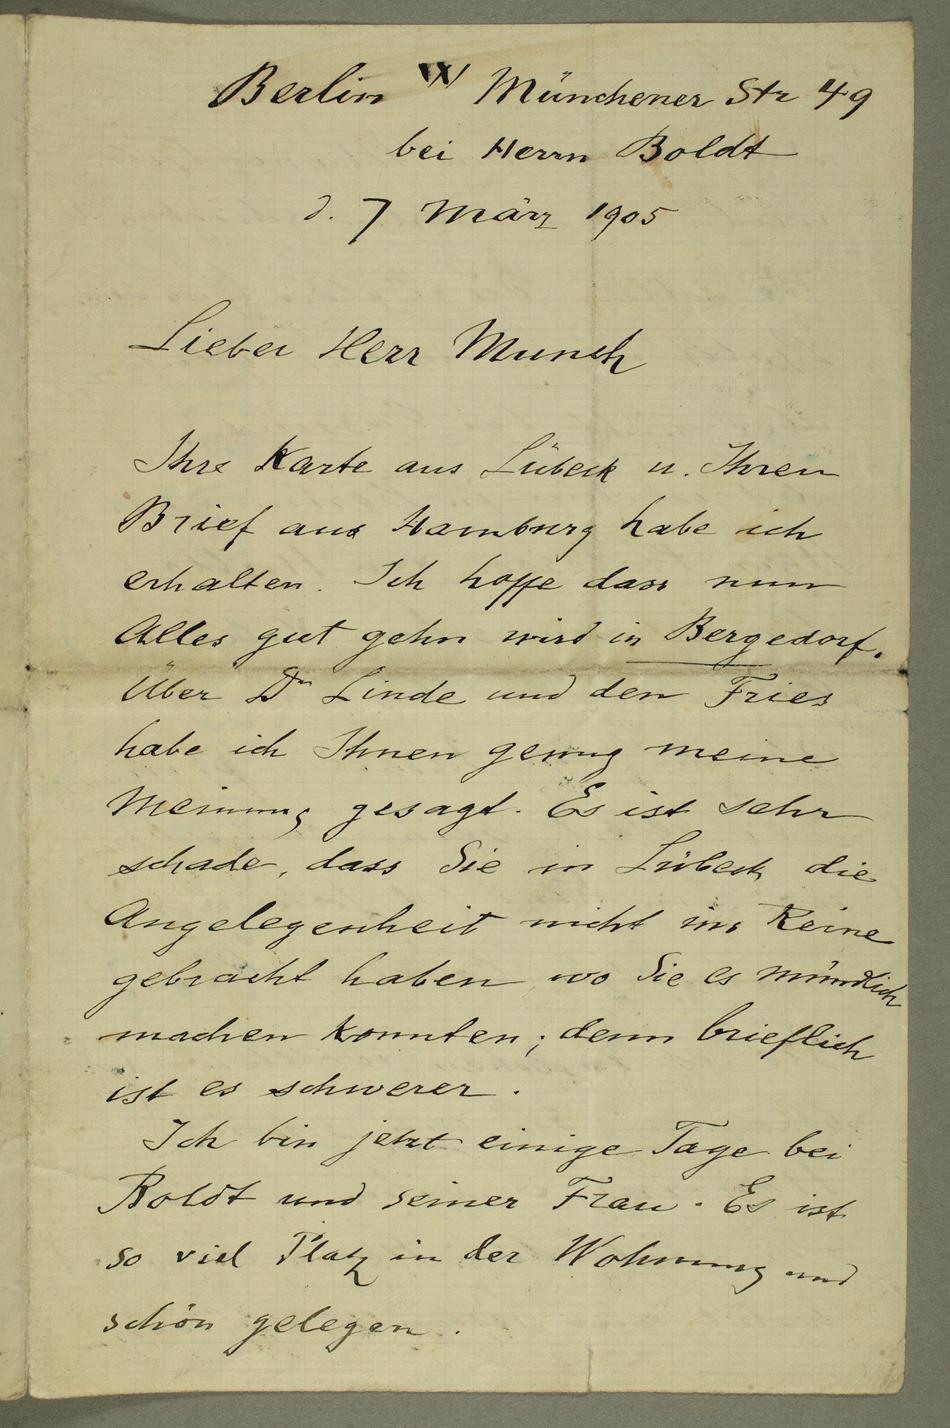 Berlin W Münchener Str 49
bei Herrn Boldt
d. 7 März 1905
Lieber Herr Munch
Ihre Karte aus Lübeck u. Ihren
Brief aus Hamburg habe ich
erhalten. Ich hoffe dass nun
Alles gut gehn wird in Bergedorf.
Über Dr Linde und den Fries
habe ich Ihnen genug meine
Meinung gesagt. Es ist sehr
schade, dass Sie in Lübeck die
Angelegenheit nicht ins Reine
gebracht haben, wo Sie es mündlich
machen konnten; denn brieflich
ist es schwerer.
Ich bin jetzt einige Tage bei
Boldt und seiner Frau. Es ist
so viel Platz in der Wohnung und
schön gelegen.